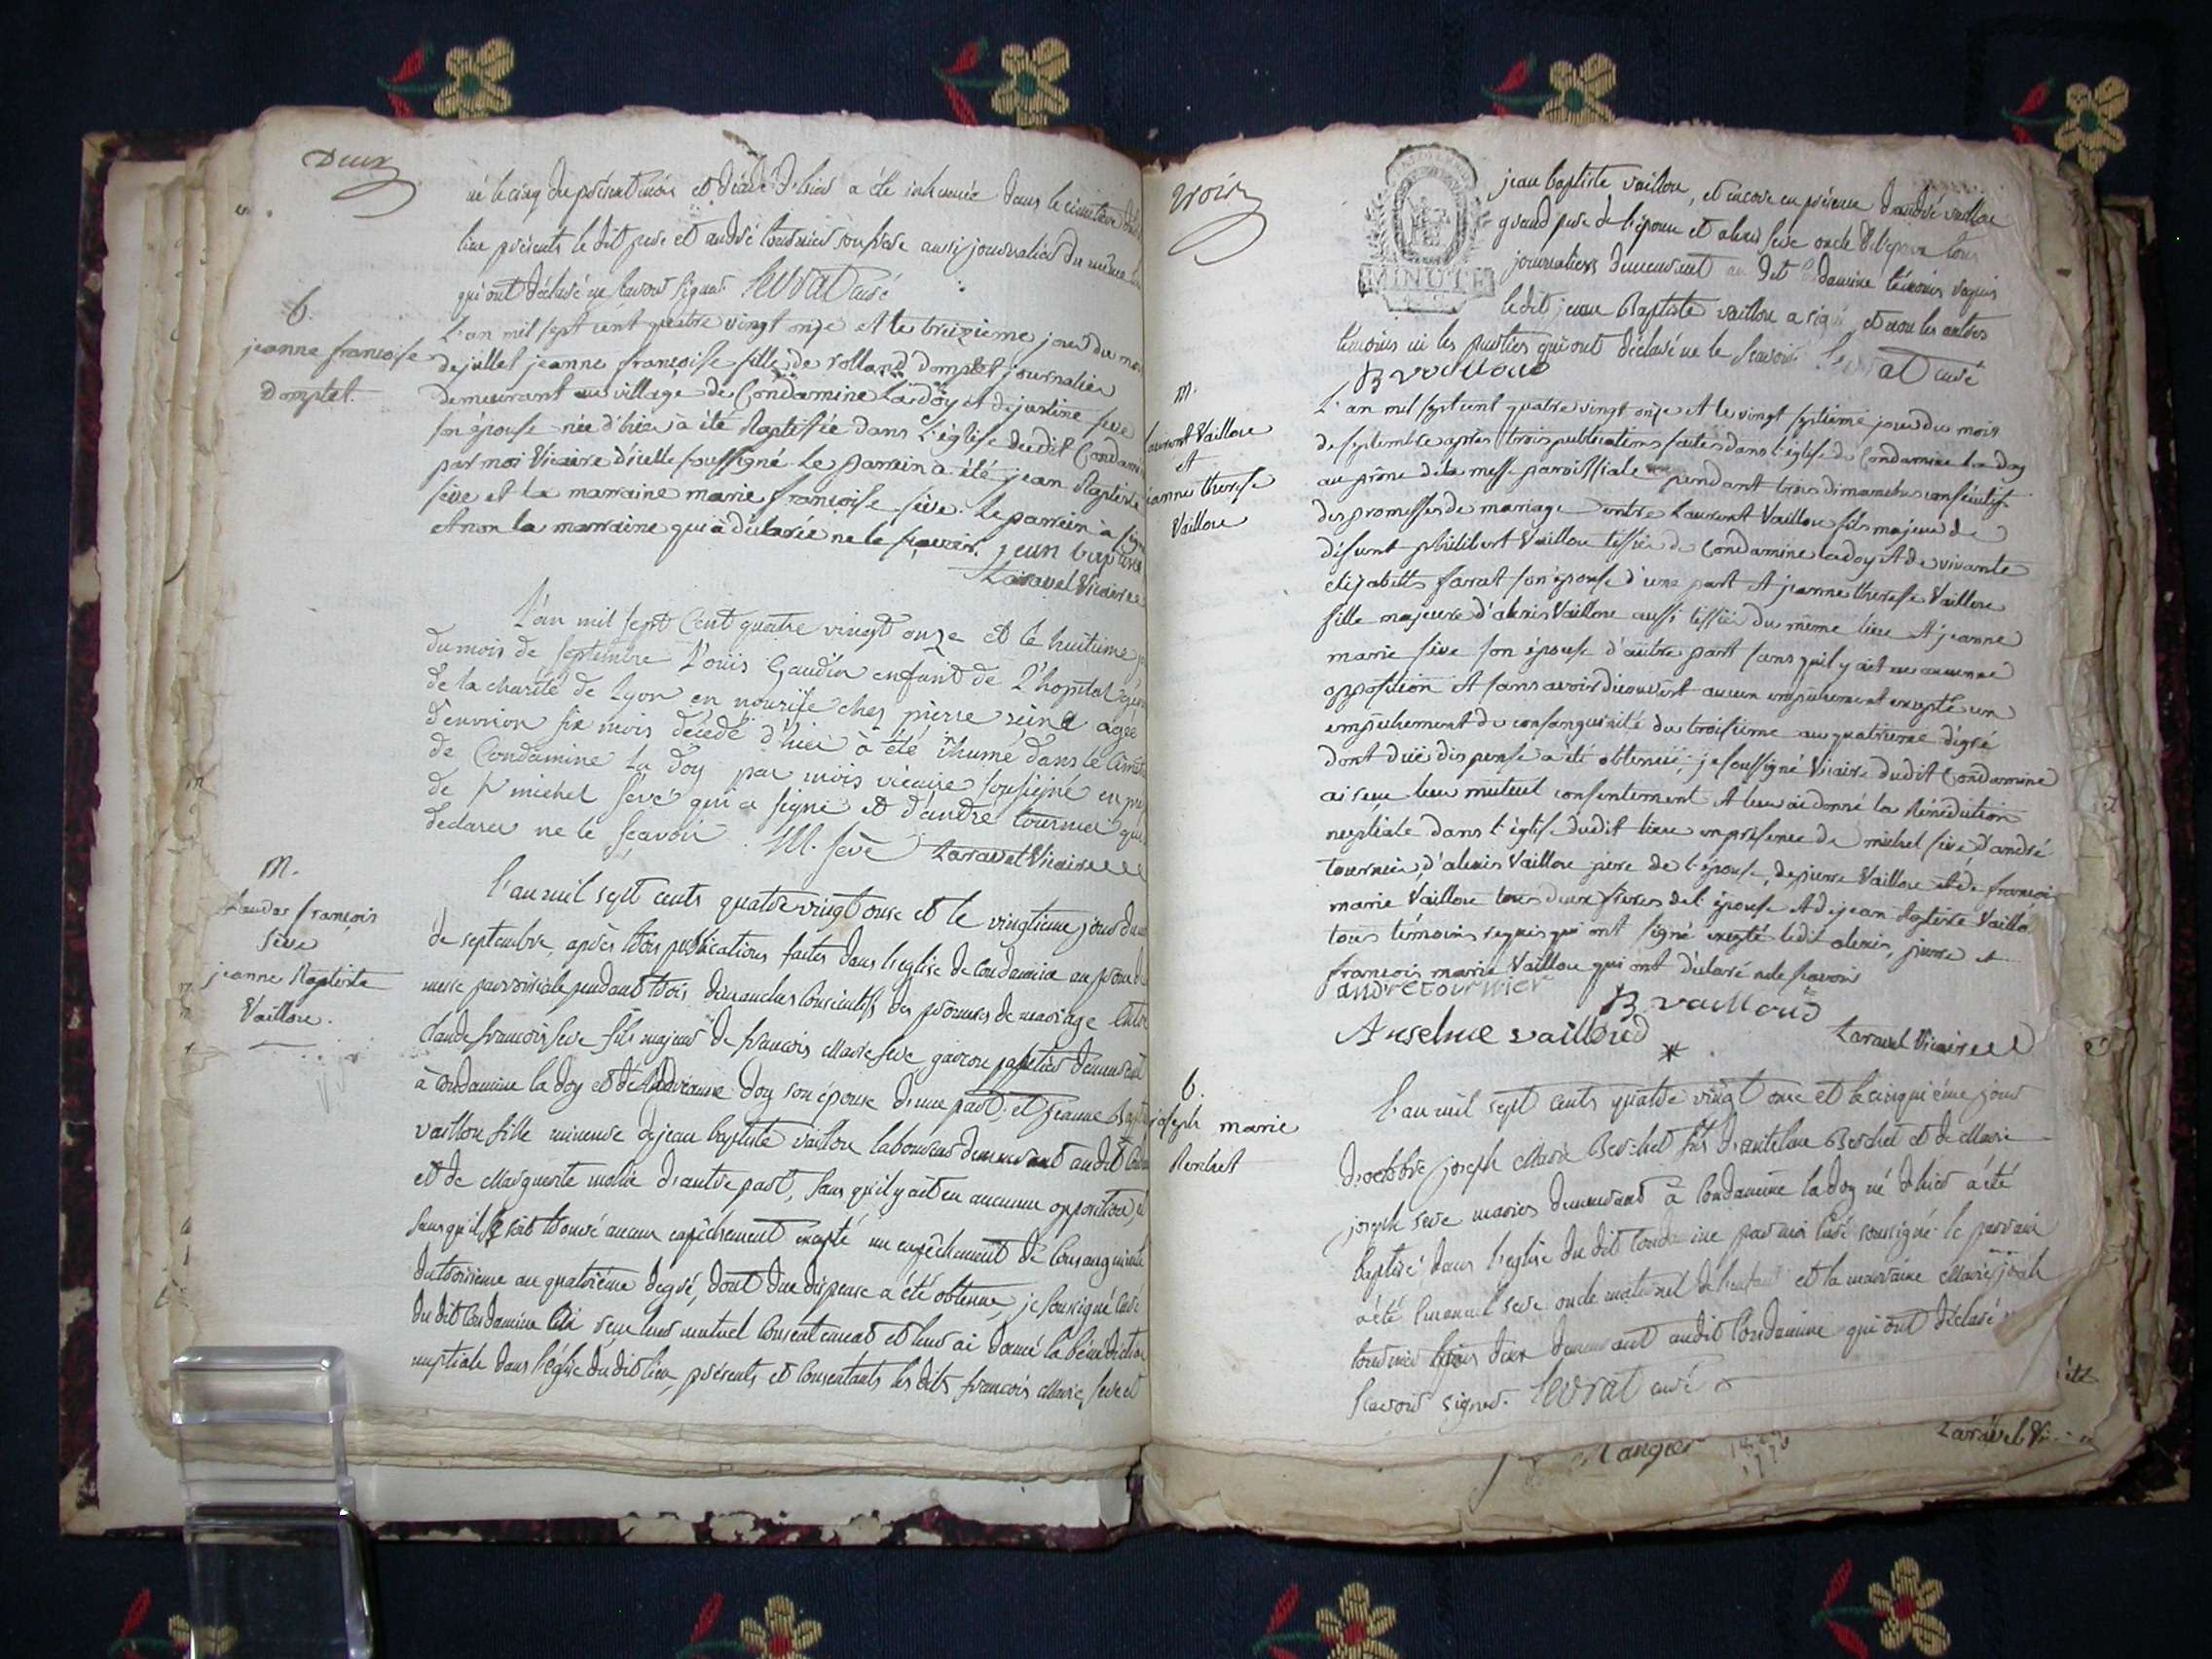 Deux
né le cinq du présent mois et décédé d'hier a été inhumée dans le cimetière dudit
lieu présents le dit pere et andré tournier son frere aussi journalier du même lieu
qui ont déclaré ne savoir signer Levrat curé
b.
jeanne francoise
domptet.
L'an mil sept cent quatre vingt onze et le treizieme jour du mois
de juillet jeanne francoise fille de rolland domptet journalier
demeurant au village de Condamine La doÿ et de justine seve
son épouse née d'hier à été Baptisée dans l'église dudit Condami
par moi Vicaire d'icelle soussigné. Le parrein a été jean Baptiste
sève et la marraine marie francoise sève. Le parrein à signé
et non la marraine qui à déclarée ne le sçavoir. jean baptiste
Laravel Vicaire
L'an mil sept Cent quatre vingt onze et le huitieme j
du mois de septembre Louis Gaudin enfant de L'hopital
de la charité de Lyon en nourise ches pierre reine agée
d'environ six mois décédé d'hier à été inhumé dans le cime
de Condamine La doy par mois vicaire sousigné en pre
de Sr michel seve qui a signé et d'andre tournier qui
declarer ne le sçavoir. M. seve Laravel Vicaire
M.
Claudes françois
seve
jeanne Baptiste
Vaillou.
l'an mil sept cents quatre vingt onze et le vingtieme jour du m
de septembre, après trois publications faites dans l'eglise de Condamine au prone de
messe paroissiale pendant trois dimanches consécutifs des promesses de mariage entre
claude françois seve fils majeur de francois Marie seve, garcon papetier demeurant
à Condamine la doy et de Andreanne doy son épouse d'une part; et jeanne Bapt
vaillou fille mineure de jean baptiste vaillou laboureur demeurant audit Con
et de Marguerite d'autre part, sans qu'il y ait eu aucune opposition, et
sans qu'il se soit trouvé aucun empêchement excepté un empêchement de consanguinité
du troisieme au quatriéme degré, dont due dispense a été obtenue, je soussigné curé
du dit Condamine ai reçu leur mutuel consentement et leur ai donné la bénédiction
nuptiale dans l'église du dit lieu, présents et consentants les dits francois Marie, seve et
trois
MINUTE
jean baptiste vaillou, et encore en présence d'andré vaillou
grand pere de l'épouse et alexis seve oncle de l'epoux tous
journaliers demeurant au dit Condamine témoins requis
le dit jean Baptiste vaillou a signé et non les autres
témoins ni les parties qui ont déclaré ne le scavoir. Levrat curé
B vailloud
M.
Laurent Vaillou
et
jeanne therese
Vaillou
L'an mil sept cent quatre vingt onze et le vingt septieme jour du mois
de septembre après trois publications faites dans l'église de Condamine la doy
au prône de la messe paroissiale pendant trois dimanches consécutifs
des promesses de mariage entre Laurent Vaillou fils majeur de
défunt philibert Vaillou tissier de Condamine ladoy et de vivante
elizabeth son épouse d'une part et jeanne therese Vaillou
fille majeure d'alexis Vaillou aussi tissier du même lieu et jeanne
marie sève son épouse d'autre part sans qu'il y ait eu aucunne
opposition et sans avoir découvert aucun empêchement excepté un
empêchement de consanguinité du troisieme au quatrieme dégré
dont duë dispense a été obtenuë; je soussigné Vicaire dudit Condamine
ai reçu leur mutuel consentement et leur ai donné la Bénédiction
nuptiale dans l'église dudit lieu en présence de michel sève d'andré
tournier, d'alexis Vaillou père de l'épouse, de pierre Vaillou et de francois
marie Vaillou tous deux frères de l'épouse et de jean Baptiste Vaillou
tous témoins requis qui ont signé excepté ledit alexis, pierre et
francois marie Vaillou qui ont déclaré ne le scavoir
andre tournier
B vailloud
Anselme vailloud
Laravel Vicaire
b.
joseph marie
Berchet
l'an mil sept cents quatre vingt onze et le cinquième jour
d'octobre joseph Marie Berchet fils d'antelme Berchet et de Marie
joseph seve mariés demeurant à Condamine la doy né d'hier a été
baptisé dans l'eglise du dit Condamine par moi curé soussigné. le parrain
a été seve oncle maternel de l'enfant et la marraine Marie joseph
tournier tous deux demeurant audit Condamine qui ont déclaré
scavoir signer. Levrat curé
Laravel Vi